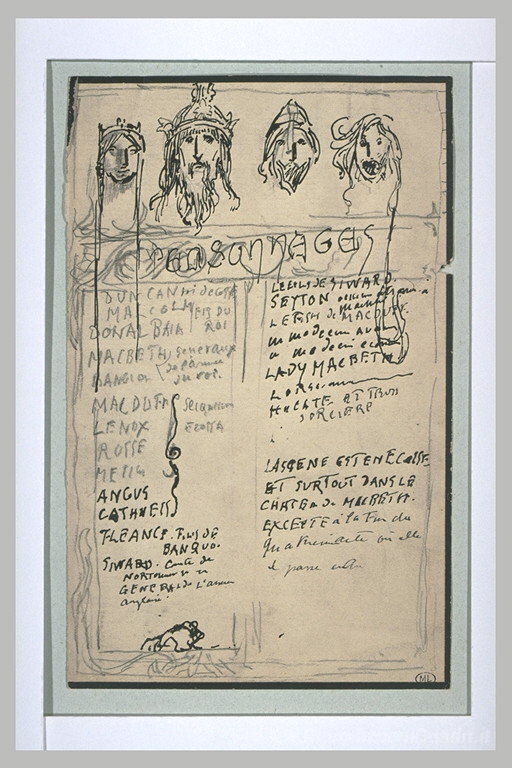 PERSONNAGES
DUNCAN roi de
MALCOLM
FILS DU
DONALBAIN
ROI
MACBETH Généraux
de l'armée
BANQUO
du roi.
MACDUFF Seigneurs
LENOX ECOSSE
ROSSE
ANGUS
CATHNESS
FLEANCE. FILS DE
BANQUO.
SIWARD. Comte de
GENERAL de L'armée
anglaise.
LE FILS DE SIWARD.
SEYTON
LE FILS de MACDUFF.
un medecin
un medecin
LADY MACBETH
HECATE ET TROIS
SORCIERE
LA SCENE EST EN ECOSSE
ET SURTOUT DANS LE
CHATEAU de MACBETH.
EXCEPTE à la Fin du
où elle
se passe
ML